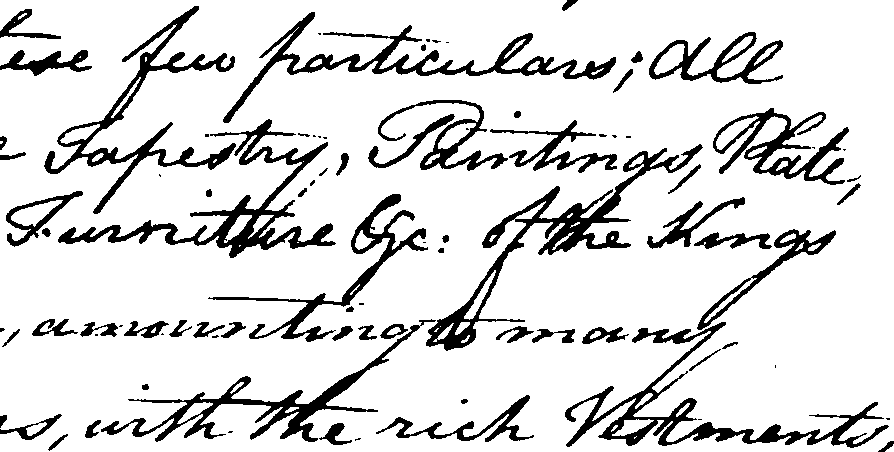 these few particulars; All
Tapestry, Paintings, Plate,
Furniture &c: of the Kings
, amounting to many
with the rich Vestments,